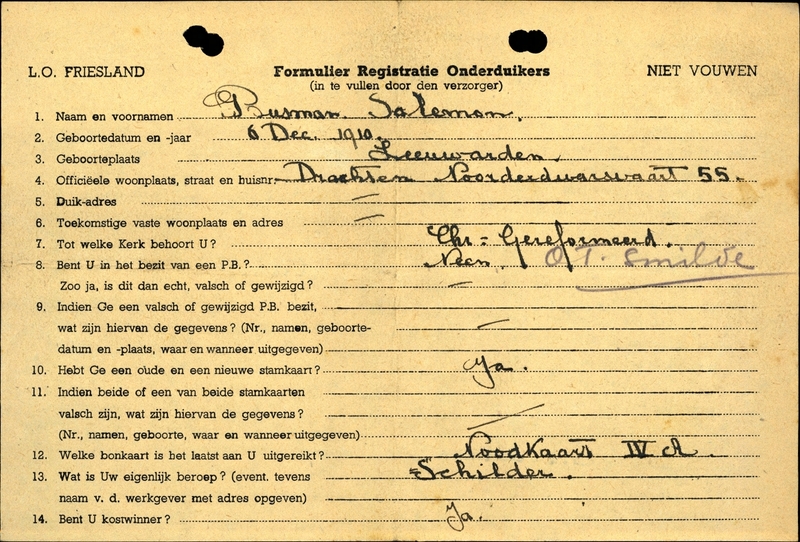 L.O. FRIESLAND Formulier Registratie Onderduikers NIET VOUWEN
(in te vullen door den verzorger)
1. Naam en voornamen Busman. Salemon.
2. Geboortedatum en -jaar 6 Dec. 1910.
3. Geboorteplaats Leeuwarden.
4. Officiëele woonplaats, straat en huisnr. Drachten Noorderdwarsvaart 55.
5. Duik-adres —
6. Toekomstige vaste woonplaats en adres —
7. Tot welke Kerk behoort U? Chr = Gereformeerd.
8. Bent U in het bezit van een P.B.? Neen O.T. Smilde
Zoo ja, is dit dan echt, valsch of gewijzigd? —
9. Indien Ge een valsch of gewijzigd P.B. bezit,
wat zijn hiervan de gegevens? (Nr., namen, geboorte- —
datum en -plaats, waar en wanneer uitgegeven)
10. Hebt Ge een oude en een nieuwe stamkaart? Ja.
11. Indien beide of een van beide stamkaarten
valsch zijn, wat zijn hiervan de gegevens? —
(Nr., namen, geboorte, waar en wanneer uitgegeven)
12. Welke bonkaart is het laatst aan U uitgereikt? Noodkaart IV
13. Wat is Uw eigenlijk beroep? (event. tevens Schilder.
naam v. d. werkgever met adres opgeven)
14. Bent U kostwinner? Ja.